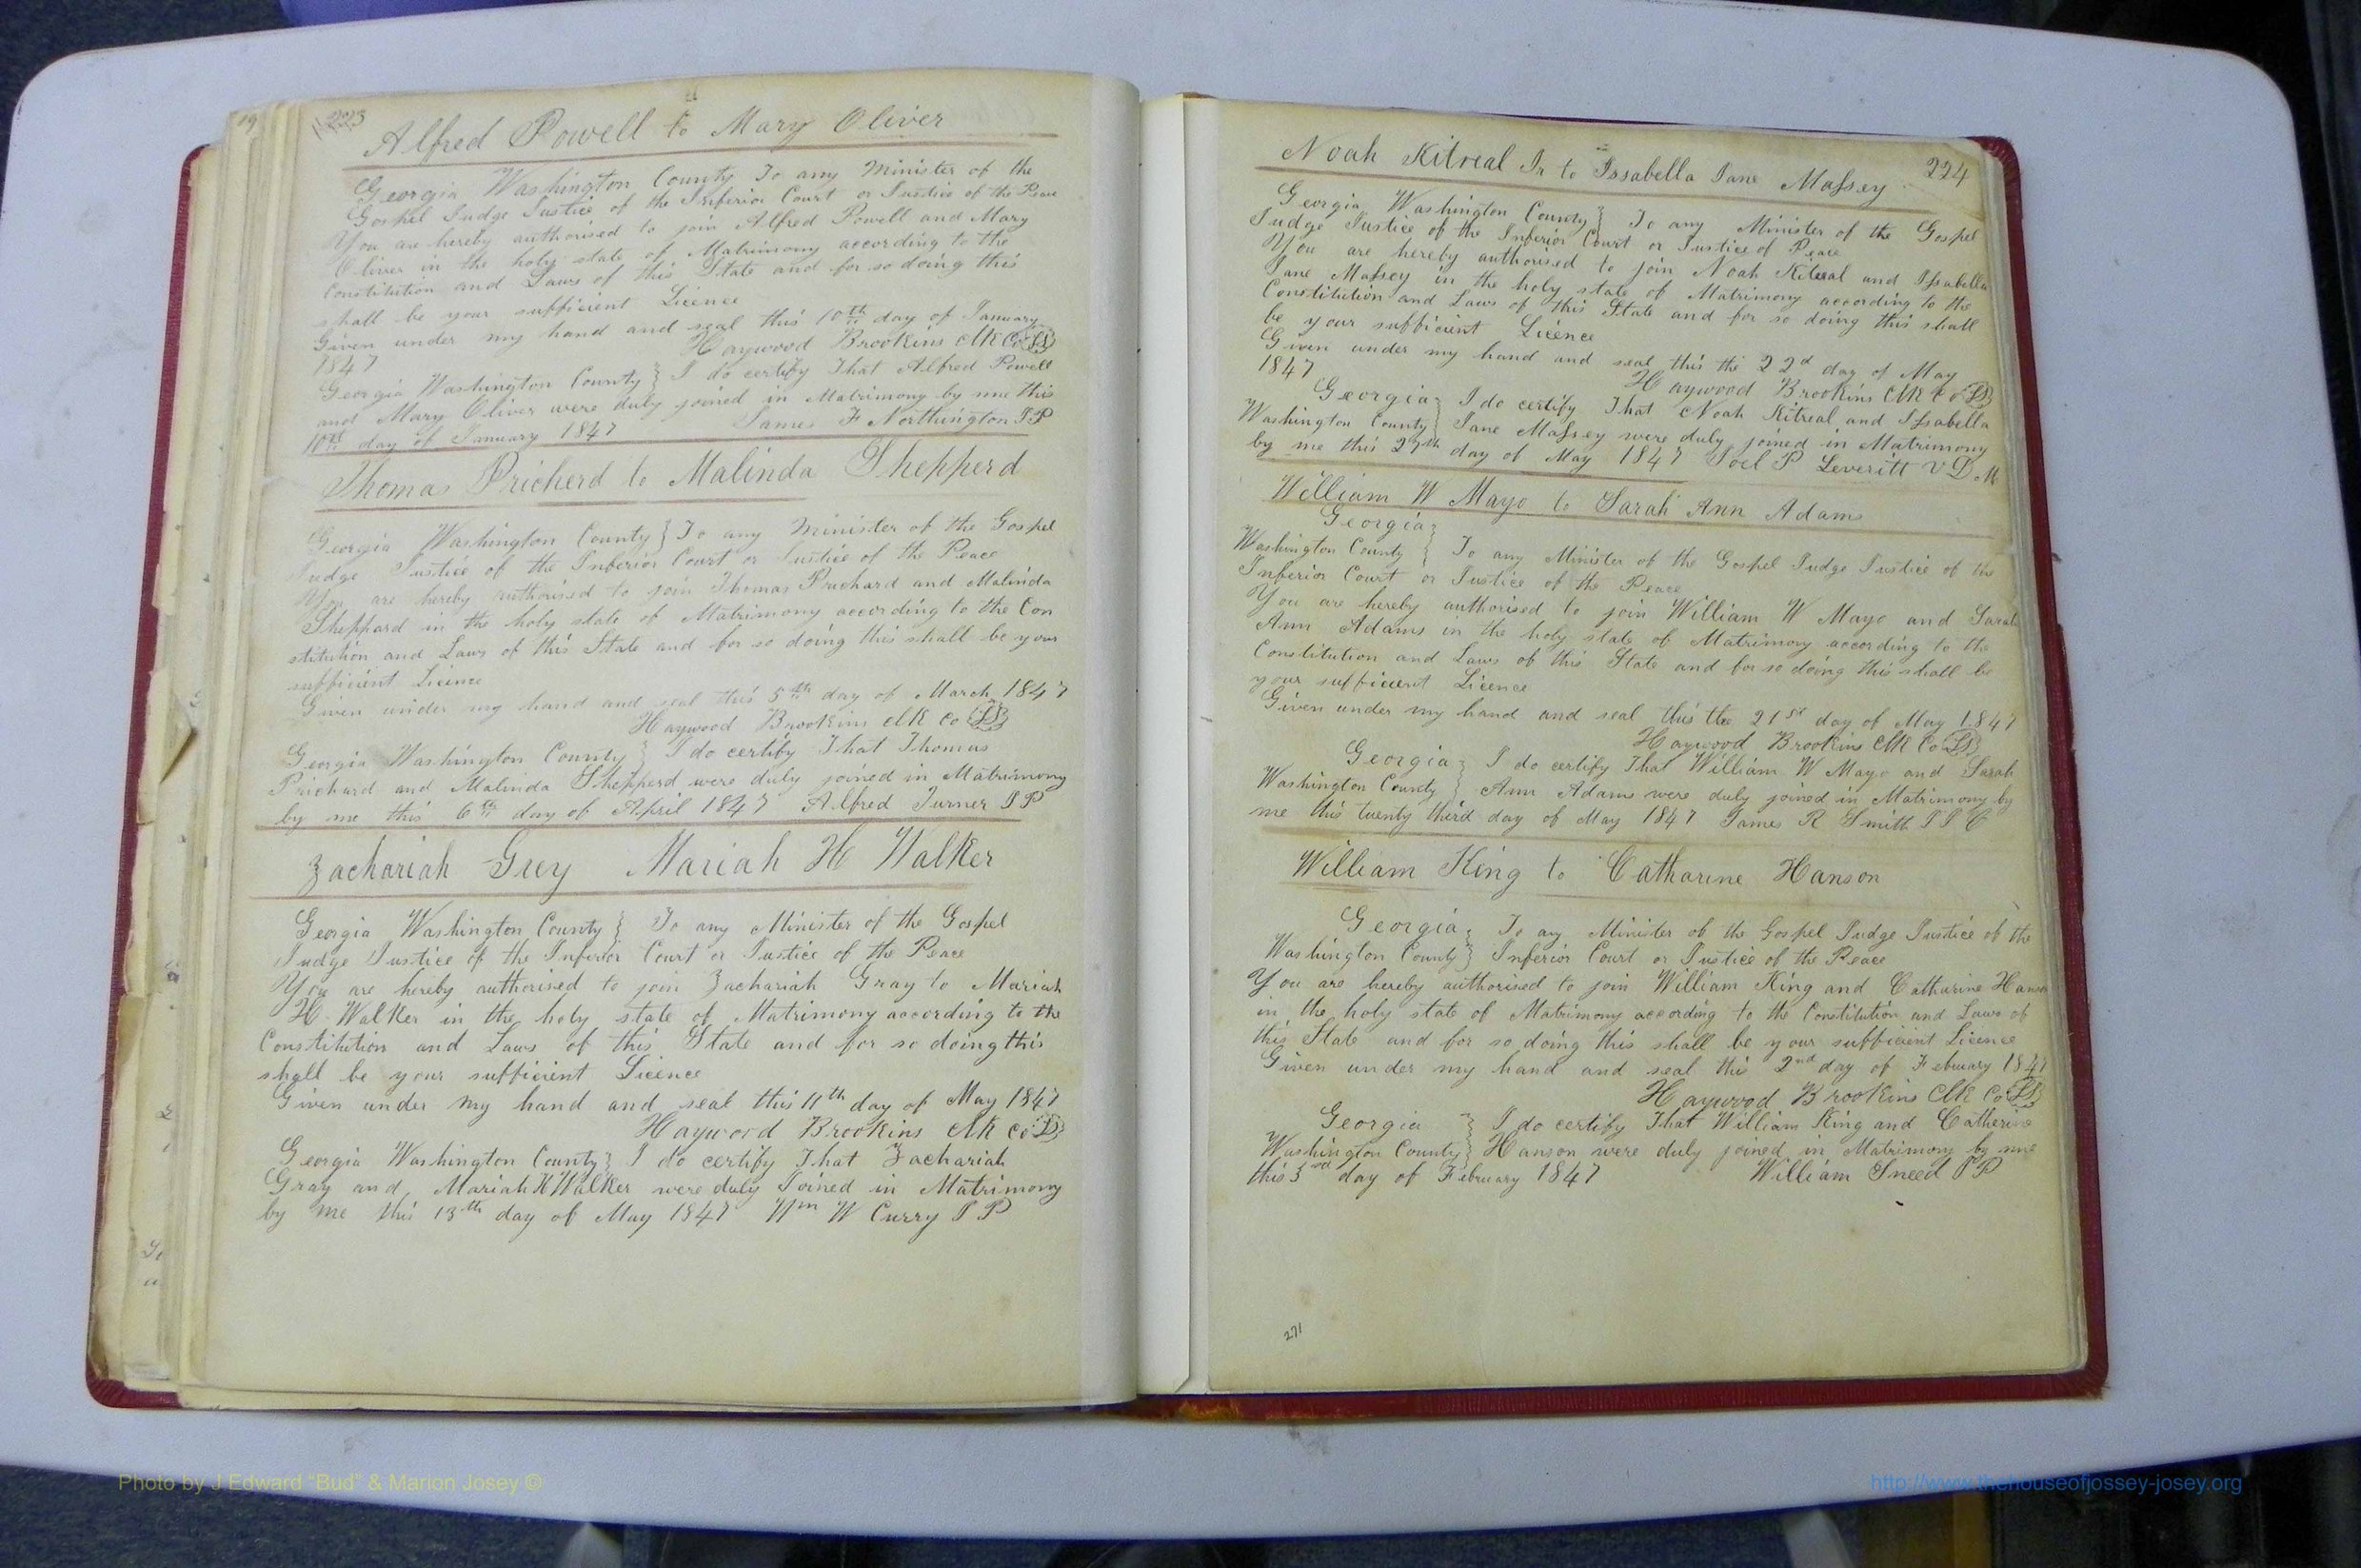 223
Alfred Powell to Mary Oliver
Georgia Washington County To any Minister of the
Gospel Judge Justice of the Inferior Court or Justice of the Peace
You are hereby authorised to join Alfred Powell and Mary
Oliver in the holy state of Matrimony according to the
Constitution and Laws of this State and for so doing this
shall be your sufficient Licence
Given under my hand and seal this 10th day of January
1847 Haywood Brookins Clk Co LS
Georgia Washington County } I do certify That Alfred Powell
and Mary Oliver were duly joined in Matrimony by me this
10th day of January 1847 James F Northington JP
Thomas Pricherd to Malinda Shepperd
Georgia Washington County } To any Minister of the Gospel
Judge Justice of the Inferior Court or Justice of the Peace
You are hereby authorised to join Thomas Prichard and Malinda
Sheppard in the holy state of Matrimony according to the Con
stitution and Laws of this State and for so doing this shall be your
sufficient Licence
Given under my hand and seal this 5th day of March 1847
Haywood Brookins Clk Co LS
Georgia Washington County } I do certify That Thomas
Prichard and Malinda Shepperd were duly joined in Matrimony
by me this 6th day of April 1847 Alfred Turner JP
Zachariah Grey Mariah H Walker
Georgia Washington County } To any Minister of the Gospel
Judge Justice of the Inferior Court or Justice of the Peace
You are hereby authorised to join Zachariah Gray to Mariah
H Walker in the holy state of Matrimony according to the
Constitution and Laws of this State and for so doing this
shall be your sufficient Licence
Given under my hand and seal this 11th day of May 1847
Haywood Brookins Clk Co LS
Georgia Washington County } I do certify That Zachariah
Gray and Mariah H Walker were duly Joined in Matrimony
by me this 13th day of May 1847 Wm W Curry JP
Noah Kitreal Jr to Issabella Jane Massey 224
Georgia Washington County } To any Minister of the Gospel
Judge Justice of the Inferior Court or Justice of Peace
You are hereby authorised to join Noah Kitreal and Issabella
Jane Massey in the holy state of Matrimony according to the
Constitution and Laws of this State and for so doing this shall
be your sufficient Licence
Given under my hand and seal this the 22d day of May
1847 Haywood Brookins Clk Co LS
Georgia } I do certify That Noah Kitreal and Issabella
Washington County } Jane Massey were duly joined in Matrimony
by me this 27th day of May 1847 Joel P Leveritt V D M
William W Mayo to Sarah Ann Adams
Georgia }
Washington County } To any Minister of the Gospel Judge Justice of the
Inferior Court or Justice of the Peace
You are hereby authorised to join William W Mayo and Sarah
Ann Adams in the holy state of Matrimony according to the
Constitution and Laws of this State and for so doing this shall be
your sufficient Licence
Given under my hand and seal this the 21st day of May 1847
Haywood Brookins Clk Co LS
Georgia } I do certify That William W Mayo and Sarah
Washington County } Ann Adams were duly joined in Matrimony by
me this twenty third day of May 1847 James R Smith J I C
William King to Catharine Hanson
Georgia } To any Minister of the Gospel Judge Justice of the
Washington County } Inferior Court or Justice of the Peace
You are hereby authorised to join William King and Catharine Hanson
in the holy state of Matrimony according to the Constitution and Laws of
this State and for so doing this shall be your sufficient Licence
Given under my hand and seal this 2nd day of February 1847
Haywood Brookins Clk Co LS
Georgia } I do certify That William King and Catherine
Washington County } Hanson were duly joined in Matrimony by me
this 3rd day of February 1847 William Sneed JP
271
Photo by J Edward “Bud” & Marion Josey ©
http://www.thehouseofjossey-josey.org